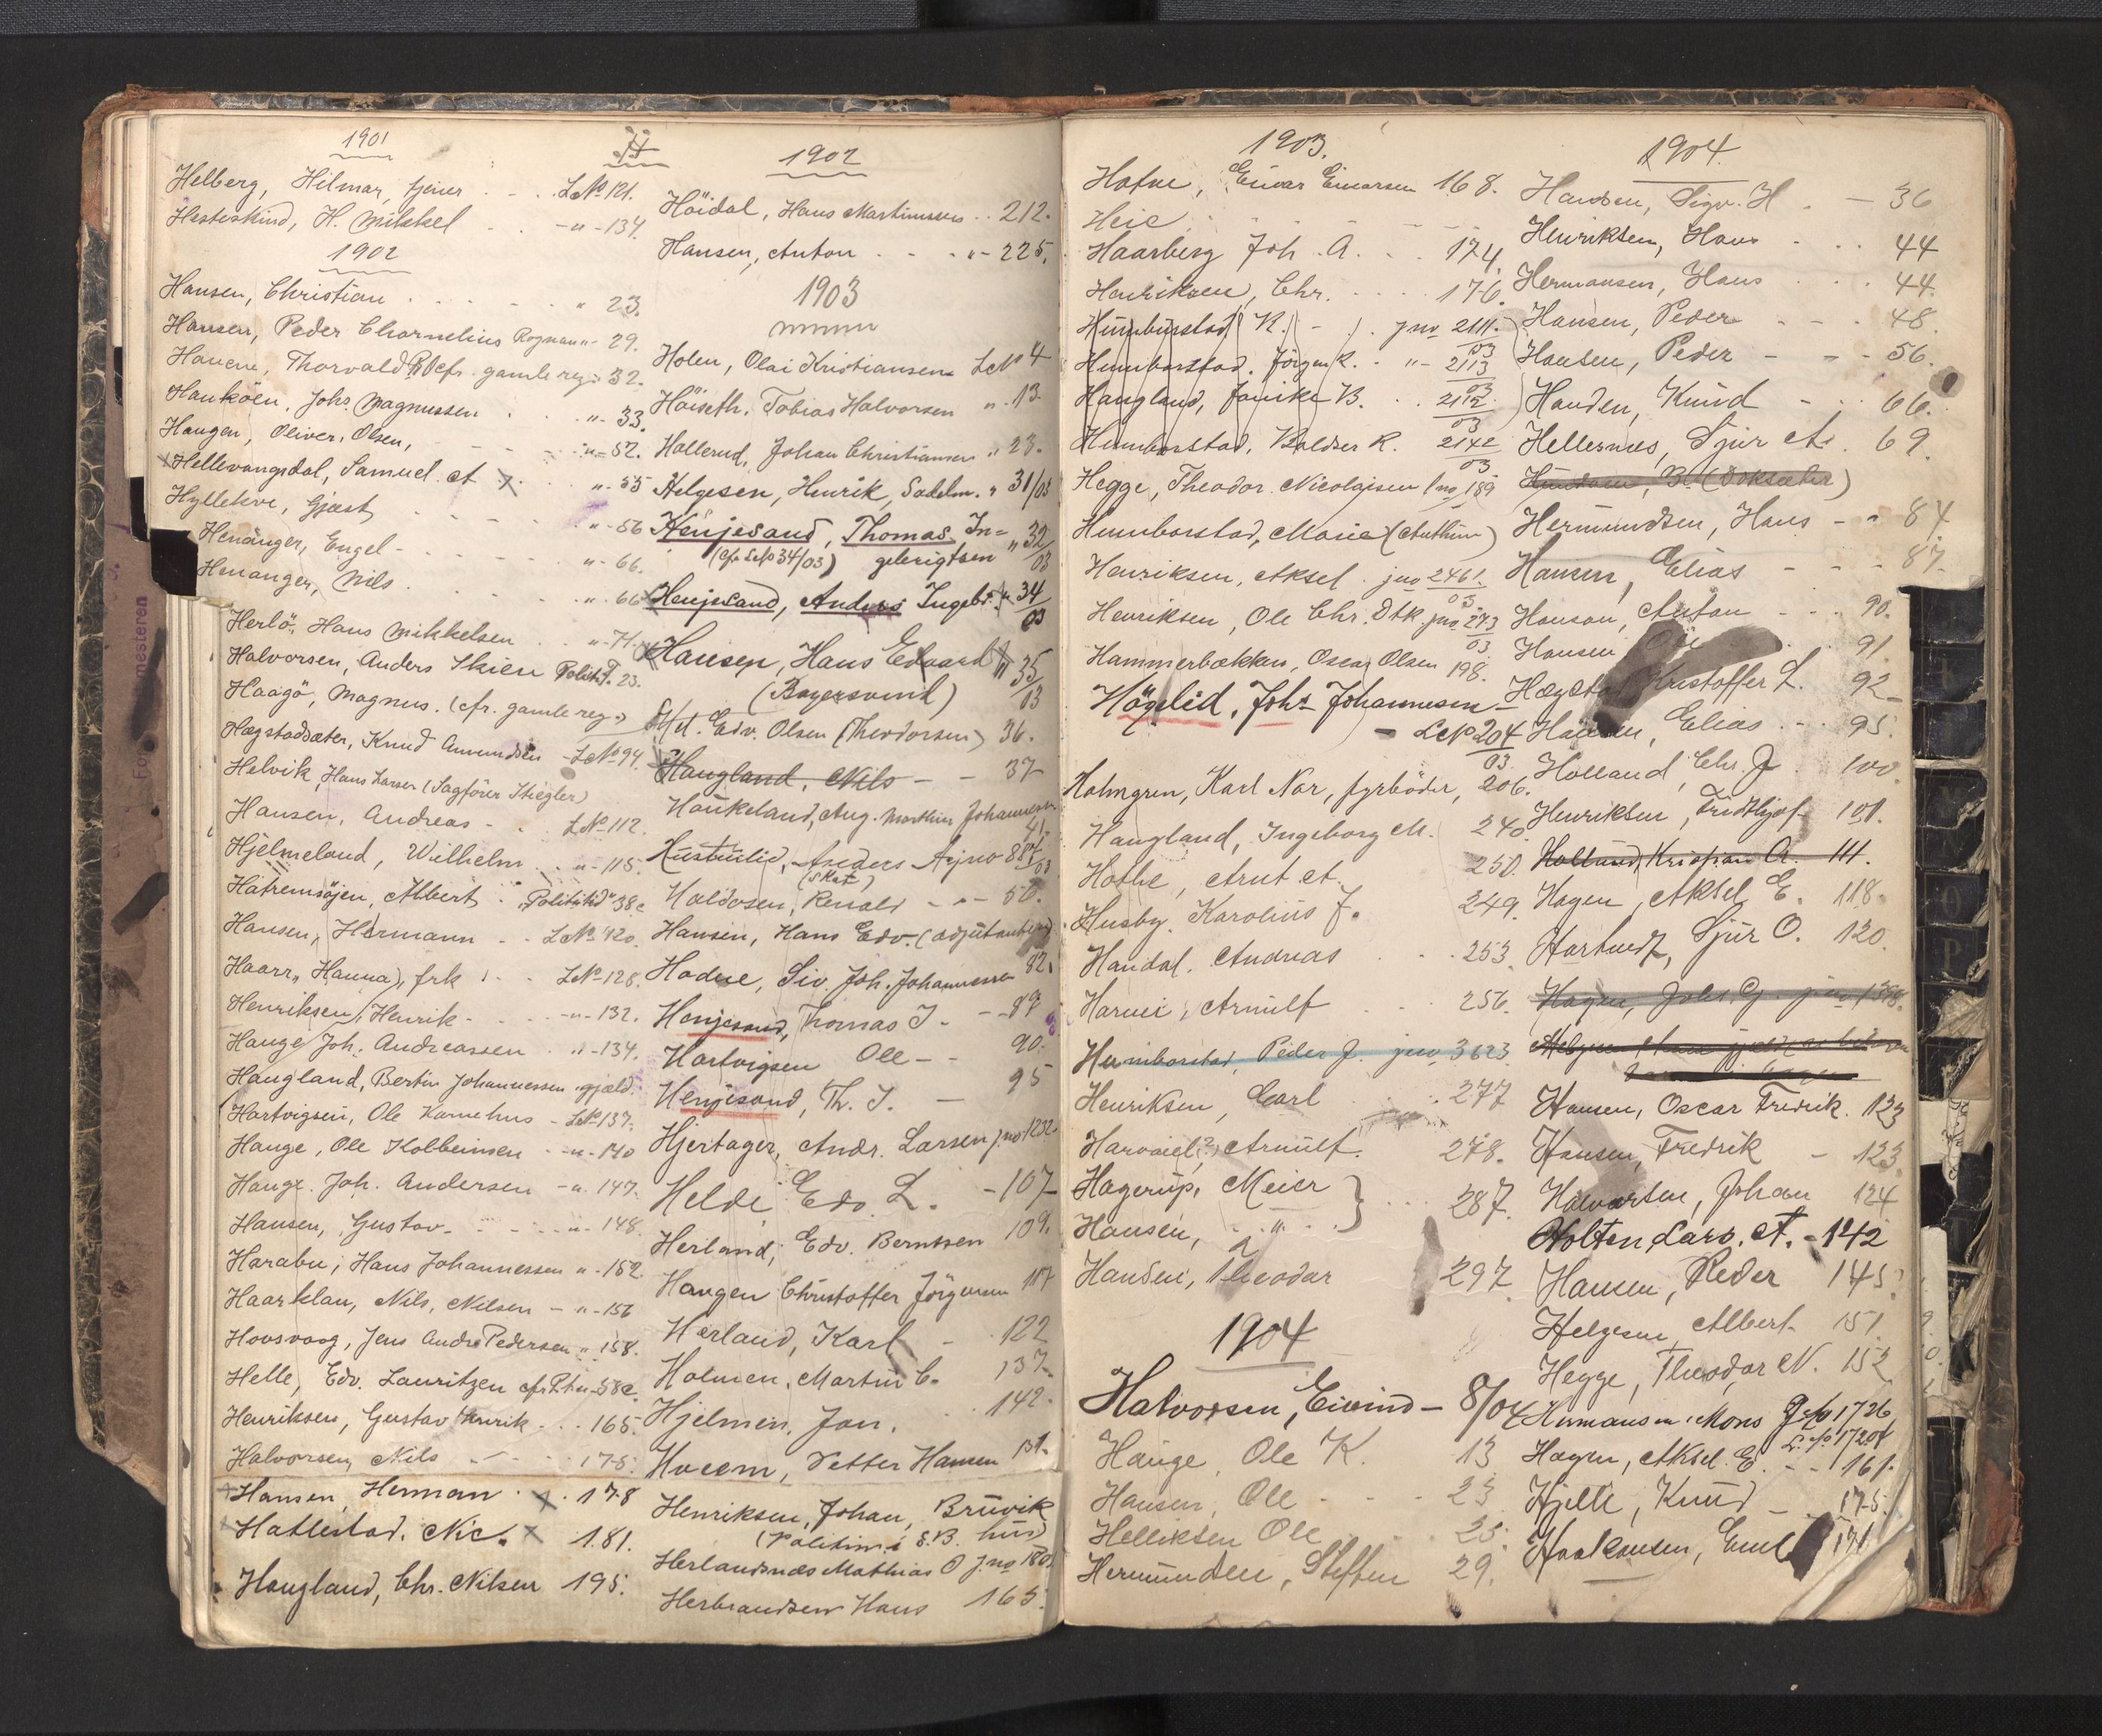 1901
H
Helberg, Hilmar, LNo 121.
Hesteskind, H. Mikkel -"- 134.
1902
Hansen, Christian " 23.
Hansen, Peder Charnelius Rognan "- 29.
Thorvald cfr. gamle reg. 32.
Hauköen, Johs. Magnussen "- 33.
Haugen, Oliver Olsen, "- 52.
Hellevangsdal, Samuel A "- 55
Hyllekve, Gjest "- 56
Henanger, Engel - "- 66.
Henanger, Nils. "- 66
Herlö, Hans Mikkelsen "- 71.
Halvorsen, Anders Skien Politit. 23.
Haagö, Magnus. (cfr. gamle reg.)
Hægstadsæter, Knud Amundsen LNo 94.
Helvik, Hans Larsen (Sagförer Stiegler)
Hansen, Andreas - LNo 112.
Hjelmeland, Wilhelm "- 115.
Hatremsöjen, Albert
Hansen, Hermann LNo 120.
Haarr, Hanna, frk LNo 128.
Henriksen, Henrik -"- 132.
Hauge, Joh. Andreassen "- 134.
Haugland, Bertin Johannessen gjæld.
Hartvigsen, Ole LNo 137.
Hauge, Ole Kolbeinsen -"- 140
Hauge, Joh. Andersen -"- 147.
Hansen, Gustav "- 148.
Harabu, Hans Johannessen "- 152.
Haarklau, Nils, Nilsen - "- 156
Hovsvaag, Jens Andr. Pedersen " 158.
Helle, Edv. Lauritzen
Henriksen, Gustav Henrik 165.
Halvorsen, Nils 175.
Hansen, Herman 178
Hatlestad, Nic. 181.
Haugland, Chr. Nilsen 195.
1902
Höidal, Hans Martinussen 212.
Hansen, Anton "- 225.
1903
Holen, Olai Kristiansen LNo 4
Höiseth, Tobias Halvorsen " 13.
Hollerud, Johan Christiansen " 23.
Helgesen, Henrik, Sadelm. " 31/03
Henjesand, Thomas In- " 32/03
(cfr LNo 34/03) gebrigtsen
Henjesand, Anders Ingebr. " 34/03
Hansen, Hans Edvard " 35/03
(Bagersvend)
Edv. Olsen (Theodorsen) 36.
Haugland, Nils - - 37
Haukeland, Aug. Marthin Johannessen
41.
(Skat)
Haldosen, Renald - 50.
Hansen, Hans Edv. (Adjutanten)
Hodne, Siv. Joh. Johannessen 82.
Henjesand, Thomas I. - - 89
Hartvigsen Ole - - 90.
Henjesand, Th. I. - 95
Hjertager, Andr. Larsen jno 1232
Helde, Edv. L. - 107
Herland, Edv. Berntsen 109.
Haugen Christoffer Jörgensen 117
Herland, Karl - 122
Holmen, Martin C. 137.
Hjelmen, Jon. 142.
Hveem, Petter Hansen 151.
Henriksen, Johan, Bruvik
(Politim. i S.B. hus)
Herlandsnæs Mathias O jno 1801
Herbrandsen Hans 165.
1903.
Hatne, Einar Einarsen 168.
Heie
Haarberg Joh. A. 174.
Henriksen, Chr. 176.
Humborstad, K. - jno 2111/03
Humborstad, Jörgen K. - "- 2113/03
Haugland, Janike B. 2112/03
Humborstad, Baldser K. 2142/03
Hegge, Theodor Nicolaisen lno 189
Humborstad, Marie (Anthun)
Henriksen, Aksel. jno 2461/03
Henriksen, Ole Chr. Dtk. jno 273/03
Hammerbækken, Oscar Olsen 198.
Högelid, Johs Johannesen -
- LNo 204/03
Holmgren, Karl Nar, fyrböder, 206.
Haugland, Ingeborg M. 240
Hothe, Arnt A. 250.
Husby, Karolius J. 249.
Handal, Andreas 253.
Harvei, Arnulf 256.
Humborstad, Peder J. jno 3623
Henriksen, Carl 277
Arnulf. 278.
Hagerup, Meier } 287.
Hansen, "
Hansen, Theodor 297.
1904
Halvorsen, Eivind - 8/04
Hauge, Ole K. 13
Hansen, Ole 23
Helliksen Ole 25.
Hermundsen, Steffen 29.
1904.
Hansen, Sigv. H. - 36
Henriksen, Hans 44
Hermansen, Hans 44.
Hansen, Peder 48.
Hansen, Peder - 56.
Handen, Knud - 66.
Hellesnæs, Sjur A. 69.
Hermundsen, Hans - 84
Hansen, Elias - 87.
Hanson, Anton 90.
Hansen, Ole 91.
Hægstad, Kristoffer L. 92
Hansen, Elias 95.
Holland, Chr. J. 100.
Henriksen, Fridthjof 101.
Holland, Kristian A. 111.
Hagen, Aksel E. 118.
Hartvedt, Sjur O. 120.
Hagen, Johs. G. jno 1398.
Hansen, Oscar Fredrik. 123
Hansen, Fredrik - 123.
Halvorsen, Johan 124
Holten, Lars. A. - 142
Hansen, Peder 145.
Helgesen, Albert 151.
Hegge, Theodor N. 152
Hermansen, Mons
Hagen, Aksel. E. 161.
Hjelle, Knud 175.
Haakonsen, Emil 171